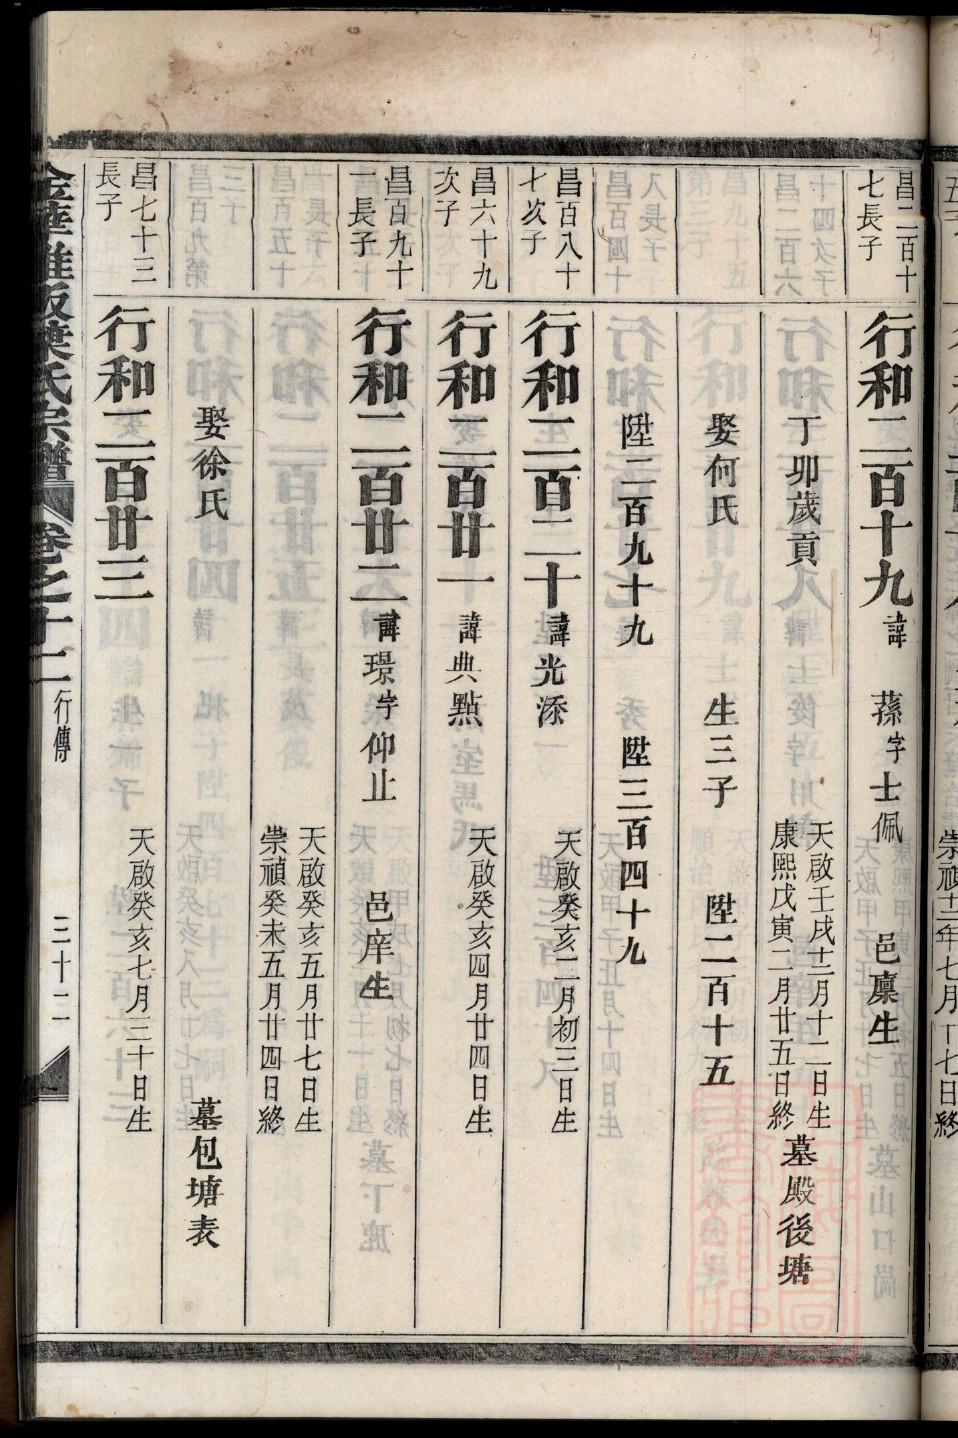 昌二百十
七長子
行和二百十九 諱 蓀 字 士佩 邑廩生
丁卯歲貢 天啟壬戌十二月十二日生
康熙戊寅二月廿五日終 墓殿後塘
娶何氏 生三子 陞二百十五
陞二百九十九 陞三百四十九
昌百八十
七次子
行和二百二十 諱 光添 天啟癸亥二月初三日生
昌六十九
次子
行和二百廿一 諱 典點 天啟癸亥四月廿四日生
昌百九十
一長子
行和二百廿二 諱 璟 字 仰止 邑庠生
天啟癸亥五月廿七日生
崇禎癸未五月廿四日終
娶徐氏 墓包塘表
昌七十三
長子
行和二百廿三 天啟癸亥七月三十日生
葉氏宗譜 卷之十二 行傳 三十二